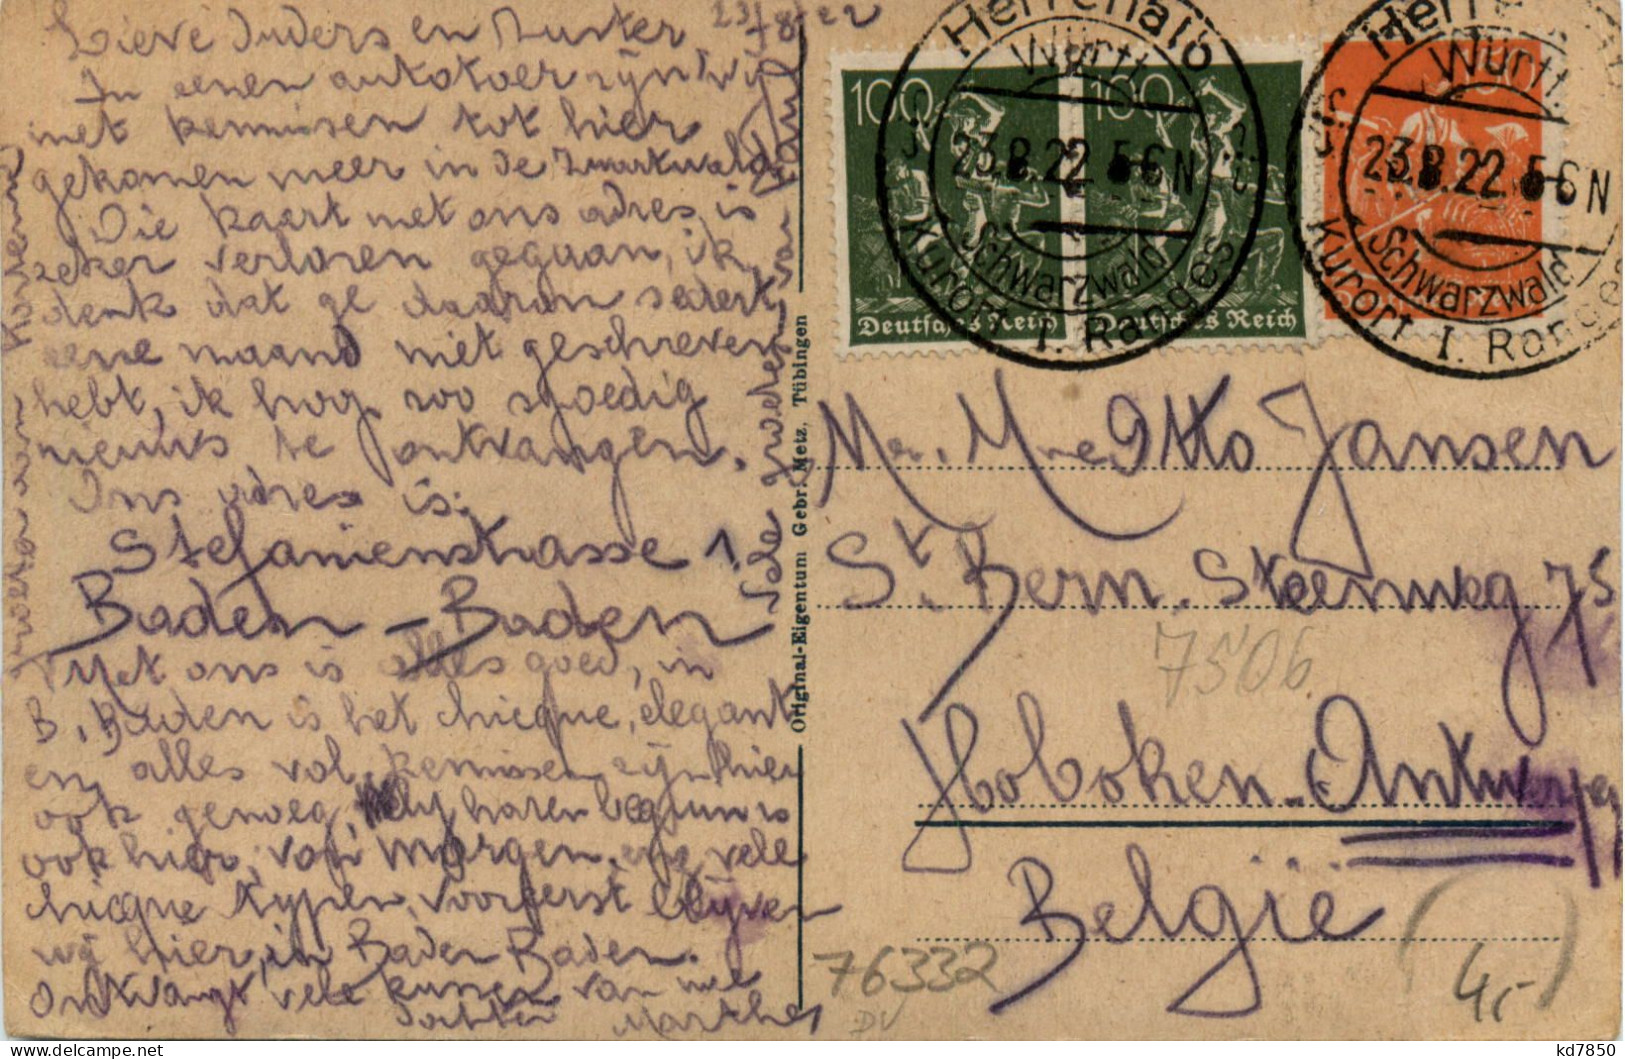 23/8-22
Lieve Ouders en Zuster,
In eenen autotoer zijn wij
met kennissen tot hier
gekomen meer in de Zwartwald
Die kaart met ons adres is
zeker verloren gegaan, ik
denk dat ge daarom sedert
eene maand niet geschreven
hebt, ik hoop zoo spoedig
nieuws te ontvangen.
Ons adres is:
Stefanienstrasse 1.
Baden-Baden
Met ons is alles goed, in
B. Baden is het chicque, elegant
en alles vol, kennissen zijn hier
ook genoeg,
ook hier, van morgen, vele
chicque typen, voorferst blijven
wij hier in Baden Baden.
Ontvangt vele kussen van
Dochter Marthe
Original-Eigentum Gebr. Metz, Tübingen
100
100
Deutsches Reich
Deutsches Reich
Herrenalb
Württ.
23.8.22 5-6N
Schwarzwald
Kurort I. Ranges
Herre
Württ.
23.8.22 5-6N
Schwarzwald
Kurort I. Ranges
Mr. Mme Otto Jansen
St. Bern. Steenweg 75
7506
Hoboken-Antwerpen
Belgie
76332
DV
4,-
kd7850